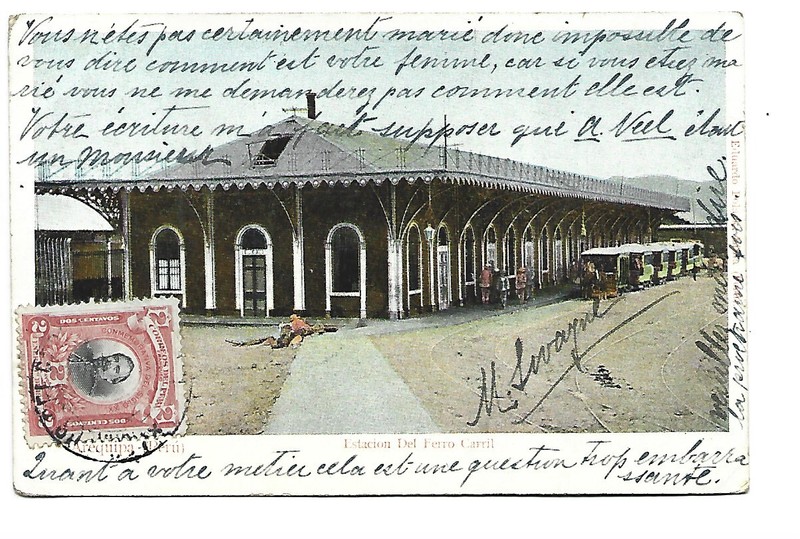 Vous n'êtes pas certainement marié donc impossible de
vous dire comment est votre femme, car si vous etiez ma
rié vous ne me demanderez pas comment elle est.
Votre écriture m'a fait supposer que A Veel était
un monsieur.
M. Swayne
veuillez me le dire.
la prochaine fois
Eduardo
DOS CENTAVOS
CORREOS DEL PERU
2
2
DOS CENTAVOS
Arequipa (Perú)
Estacion Del Ferro Carril
Quant à votre metier cela est une question trop embarra
ssante.